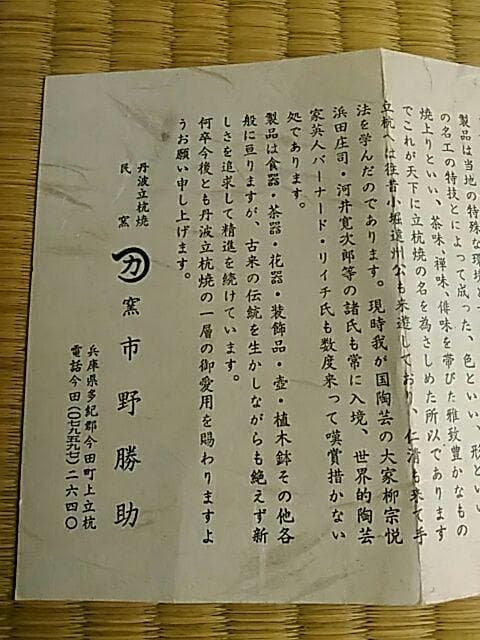 製品は当地の特殊な環境と
の名工の特技とによって成った、色といい、形といい
焼上りといい、茶味、禅味、俳味を帯びた雅致豊かなもの
でこれが天下に立杭焼の名を為さしめた所以であります
立杭へは往昔小堀遠州公も来遊しており、仁清も来て手
法を学んだのであります。現時我が国陶芸の大家柳宗悦
浜田庄司・河井寛次郎等の諸氏も常に入境、世界的陶芸
家英人バーナード・リイチ氏も数度来って嘆賞措かない
処であります。
製品は食器・茶器・花器・装飾品・壺・植木鉢その他各
般に亘りますが、古来の伝統を生かしながらも絶えず新
しさを追求して精進を続けています。
何卒今後とも丹波立杭焼の一層の御愛用を賜わりますよ
うお願い申し上げます。
丹波立杭焼
民窯
カ窯 市野勝助
兵庫県多紀郡今田町上立杭
電話今田(〇七九五九七)二六四〇